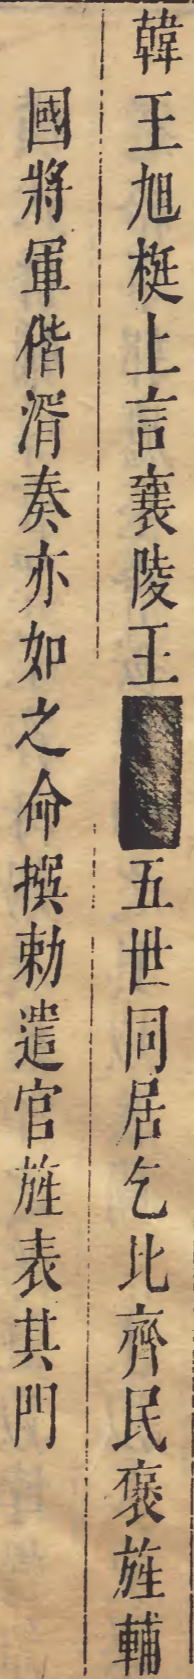 韓王旭梴上言襄陵王■五世同居乞比齊民褒旌輔
國將軍偕湑奏亦如之命撰勅遣官旌表其門